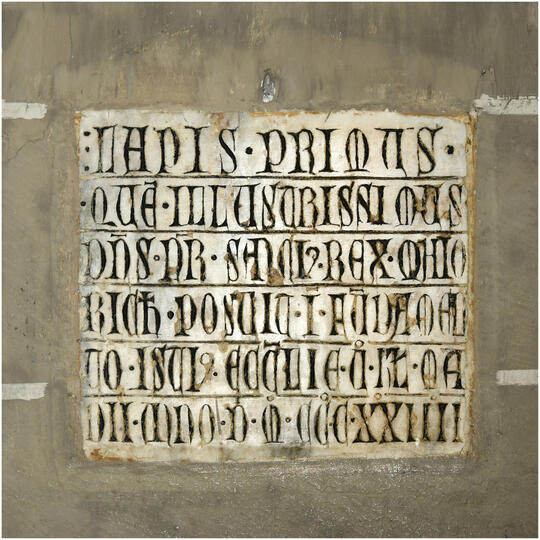 :LAPIS·PRIMUS·
QUE̅·ILLUSTRISSIMUS
DN̅S·NR·SANCIꝰ·REX·MAIO
RICꝜ·POSUIT·I̅·FU̅DAMEN
TO·ISTIꝰ·ECCL̅IE· MA
DII·ANNO·D·M·CCC·XXIIII